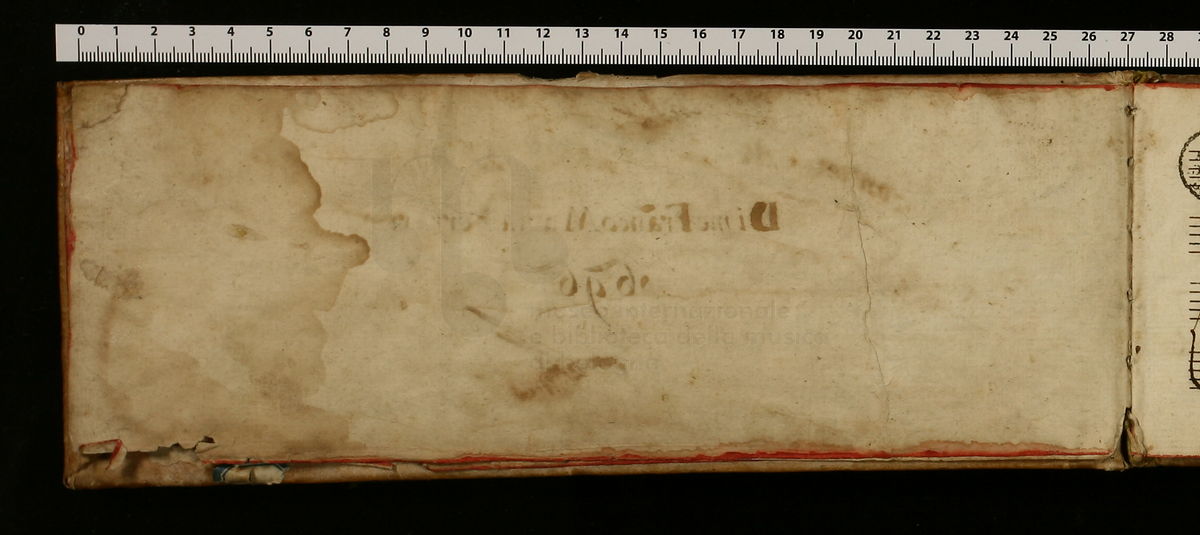 0 1 2 3 4 5 6 7 8 9 10 11 12 13 14 15 16 17 18 19 20 21 22 23 24 25 26 27 28
Di me Franco Maria
1696
museo internazionale
e biblioteca della musica